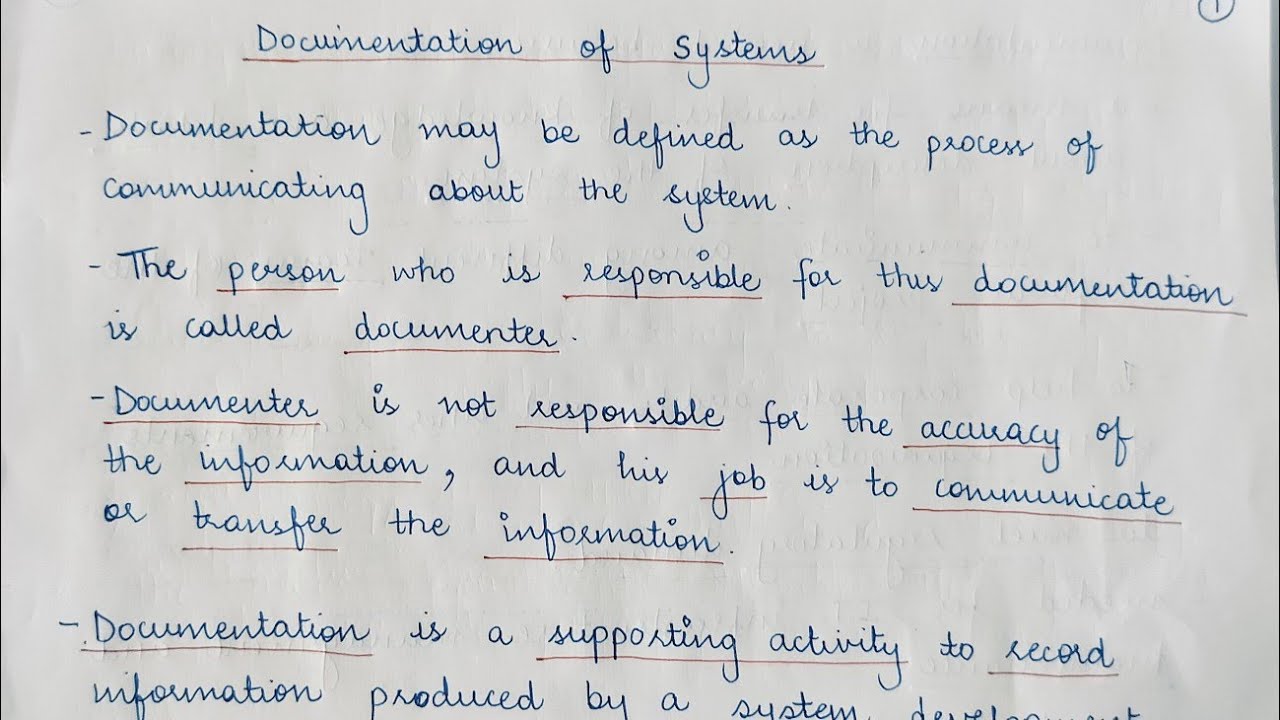 1
Documentation of Systems
- Documentation may be defined as the process of
communicating about the system.
- The person who is responsible for this documentation
is called documenter.
- Documenter is not responsible for the accuracy of
the information, and his job is to communicate
or transfer the information.
- Documentation is a supporting activity to record
information produced by a system development